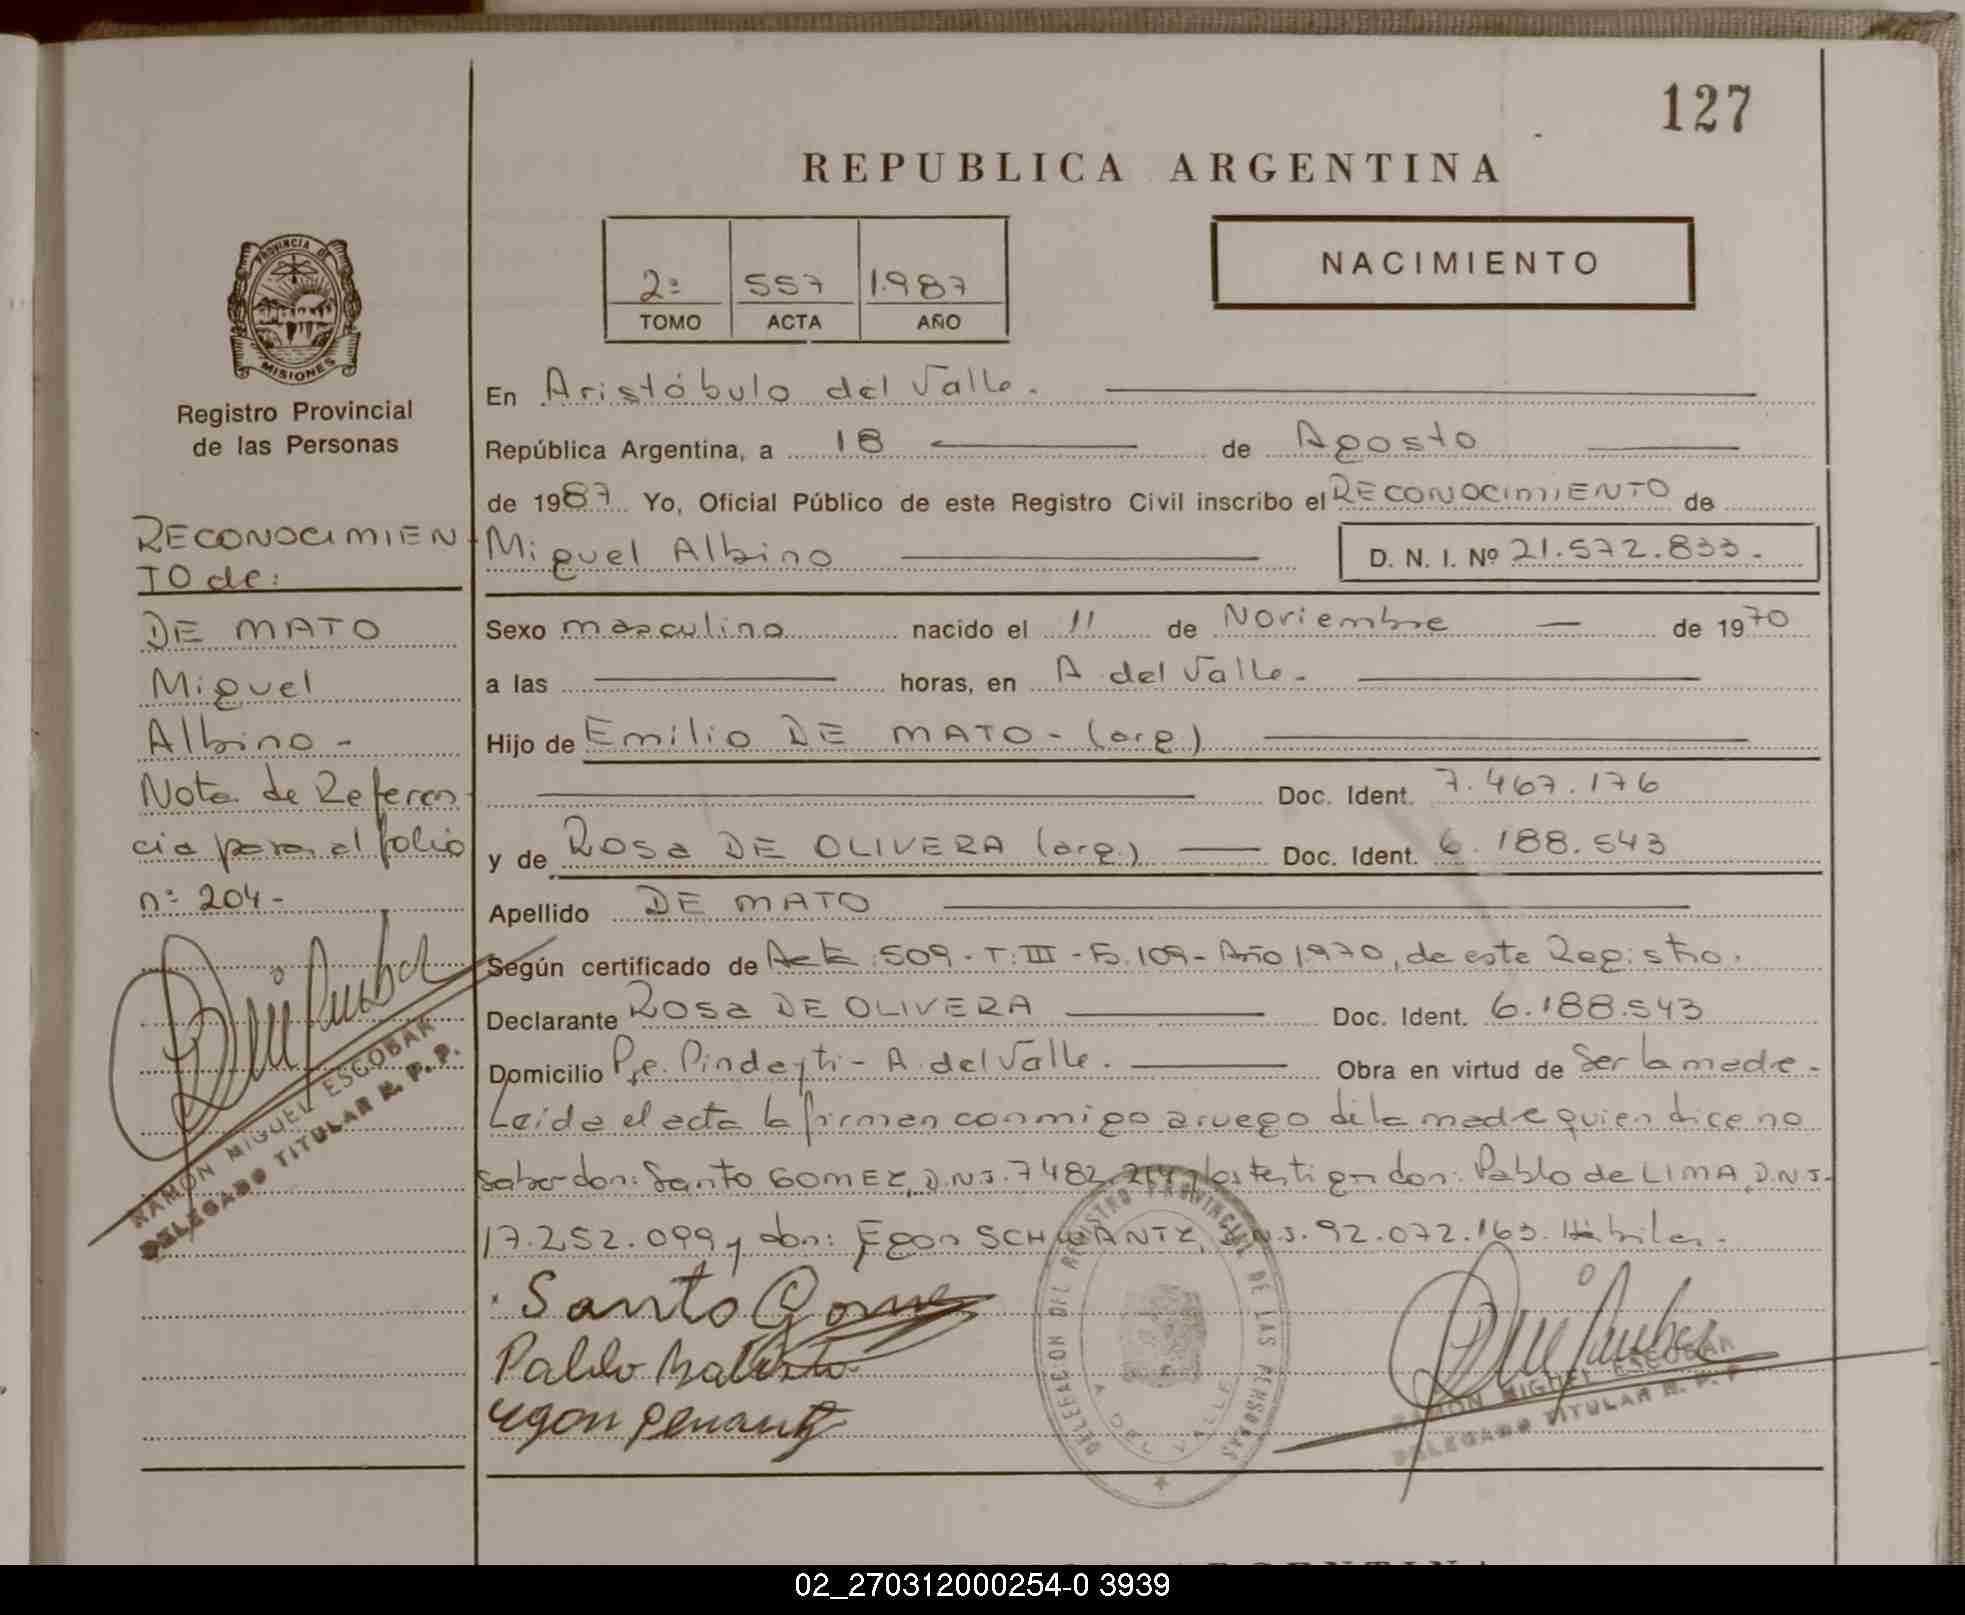 127
REPUBLICA ARGENTINA
2º 557 1.987
TOMO ACTA AÑO
NACIMIENTO
PROVINCIA DE MISIONES
Registro Provincial
de las Personas
RECONOCIMIEN
TO de:
DE MATO
Miguel
Albino -
Nota de Referen
cia para el folio
nº 204-
RAMON MIGUEL ESCOBAR
DELEGADO TITULAR R. P. P.
En Aristóbulo del Valle.
República Argentina, a 18 de Agosto
de 1987 Yo, Oficial Público de este Registro Civil inscribo el RECONOCIMIENTO de
Miguel Albino D. N. I. Nº 21.572.833.
Sexo masculino nacido el 11 de Noviembre de 1970
a las horas, en A. del Valle.
Hijo de Emilio DE MATO - (arg.)
Doc. Ident. 7.467.176
y de Rosa DE OLIVERA (arg.) Doc. Ident. 6.188.543
Apellido DE MATO
Según certificado de Acta: 509 - T: III - Fº. 109 - Año 1970, de este Registro.
Declarante Rosa DE OLIVERA Doc. Ident. 6.188.543
Domicilio Pindayti - A. del Valle. Obra en virtud de Ser la madre.
Leída el acta la firman conmigo a ruego de la madre quien dice no
saber don: Santo GOMEZ, D.N.I. 7482. y los testigos don: Pablo de LIMA, D.N.I.
17.252.099 y don: Egon SCHWANTZ, D.N.I. 92.072.163. Hábiles.
Santo Gomez
Pablo
Egon
DELEGACION DEL REGISTRO PROVINCIAL DE LAS PERSONAS
A. DEL VALLE
RAMON MIGUEL ESCOBAR
DELEGADO TITULAR R. P. P.
02_270312000254-0 3939